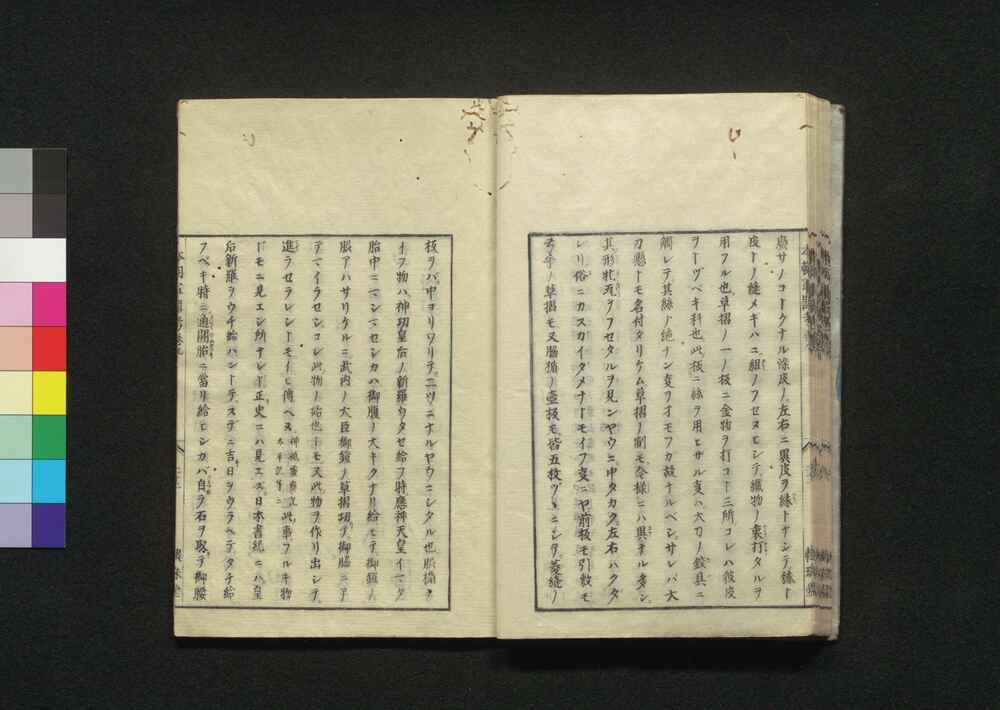 扇サノコトクナル滌皮ノ左右ニ異皮ヲ縁トナシテ縁ト
皮トノ縫メキハニ組ノフセヌヒシテ織物ノ裏打タルヲ
用フル也草摺ノ一ノ板ニ金物ヲ打コト三所コレハ彼皮
ヲトヅベキ料也此板ニ絲ヲ用ヒサル事ハ大刀ノ鐶具ニ
觸レテ其絲ノ絶ナン事ヲオモフカ故ナルベシサレバ大
刀懸トモ名付タリケム草摺ノ制モ今様ニハ異ナル多シ
其形瓦ヲフセタルヲ見ンヤウニ中タカク左右ハクタ
レリ俗ニカスカイタメナトモイフ事ニヤ前板モ引敷モ
弓手ノ草摺モ又脇楯ノ壺板モ皆五枚ツヽニシテ菱縫ノ
板ヲバ中ヨリワリテ二ツニナルヤウニシタル也脇楯ト
イフ物ハ神功皇后ノ新羅ウタセ給フ時應神天皇イマタ
胎中ニマシマセシカハ御腹ノ大キクナリ給ヒテ御鎧ノ
脇アハサリケルニ武内ノ大臣御鎧ノ草摺切テ御脇ニアテ
テマイラセシコレ此物ノ始也トモ又此物ヲ作リ出シテ
進ラセラレシトモイヒ傳ヘヌ 此事フルキ物
トモニ見エシ所ナレト正史ニハ見エズ日本書紀ニハ皇
后新羅ヲウチ給ハントテステニ吉日ヲウラヘテタチ給
フベキ時ニ適開胎ニ當リ給ヒシカバ自ラ石ヲ取テ御腰